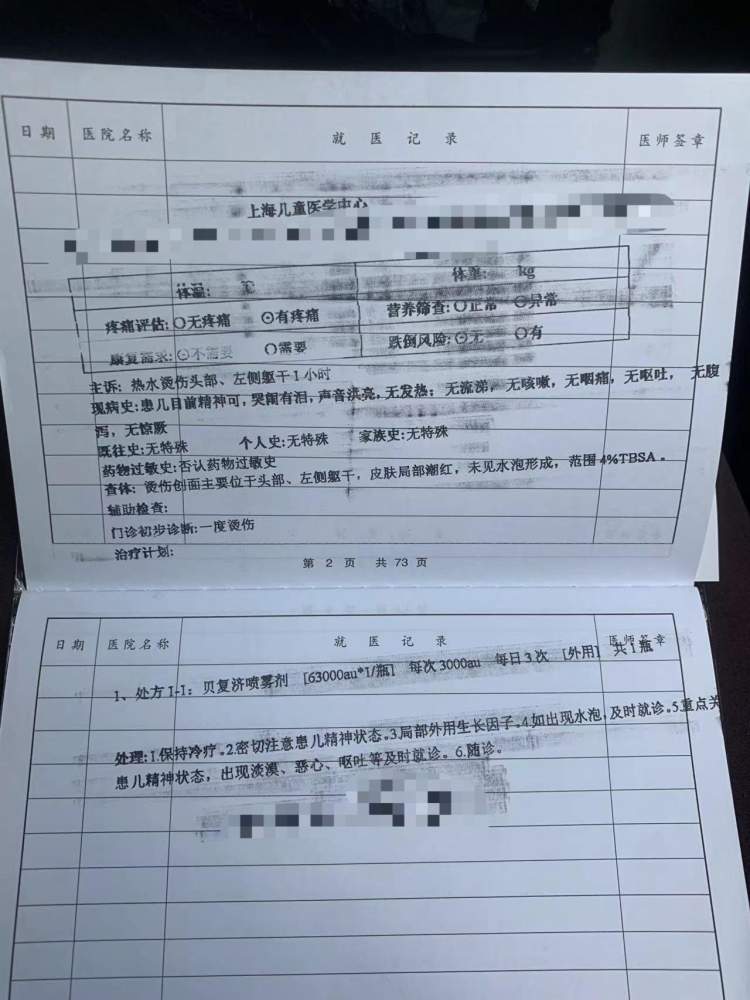 日期 医院名称 就医记录 医师签章
上海儿童医学中心
体温: ℃ 体重: kg
疼痛评估:○无疼痛 ⊙有疼痛 营养筛查:○正常 ⊙异常
康复需求:⊙不需要 ○需要 跌倒风险:⊙无 ○有
主诉: 热水烫伤头部、左侧躯干1小时
现病史:患儿目前精神可,哭闹有泪,声音洪亮,无发热; 无流涕, 无咳嗽, 无咽痛, 无呕吐, 无腹
泻, 无惊厥
既往史:无特殊 个人史:无特殊 家族史:无特殊
药物过敏史:否认药物过敏史
查体: 烫伤创面主要位于头部、左侧躯干, 皮肤局部潮红, 未见水泡形成, 范围4%TBSA。
辅助检查:
门诊初步诊断:一度烫伤
治疗计划:
第 2 页 共 73 页
日期 医院名称 就医记录 医师签章
1、处方1-1: 贝复济喷雾剂 [63000au*1/瓶] 每次3000au 每日3次 [外用] 共1瓶
处理:1.保持冷疗。2.密切注意患儿精神状态。3.局部外用生长因子。4.如出现水泡,及时就诊。5.重点关
患儿精神状态, 出现淡漠、恶心、呕吐等及时就诊。6.随诊。